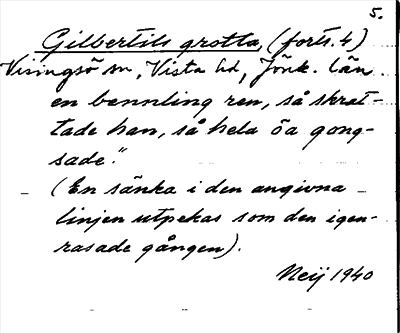 5.
Gilbertils grotta, (forts. 4)
Visingsö sn, Vista hd, Jönk. län
en bennling ren, så skrat-
tade han, så hela öa gong-
sade."
(En sänka i den angivna
linjen utpekas som den igen-
rasade gången).
Neij 1940